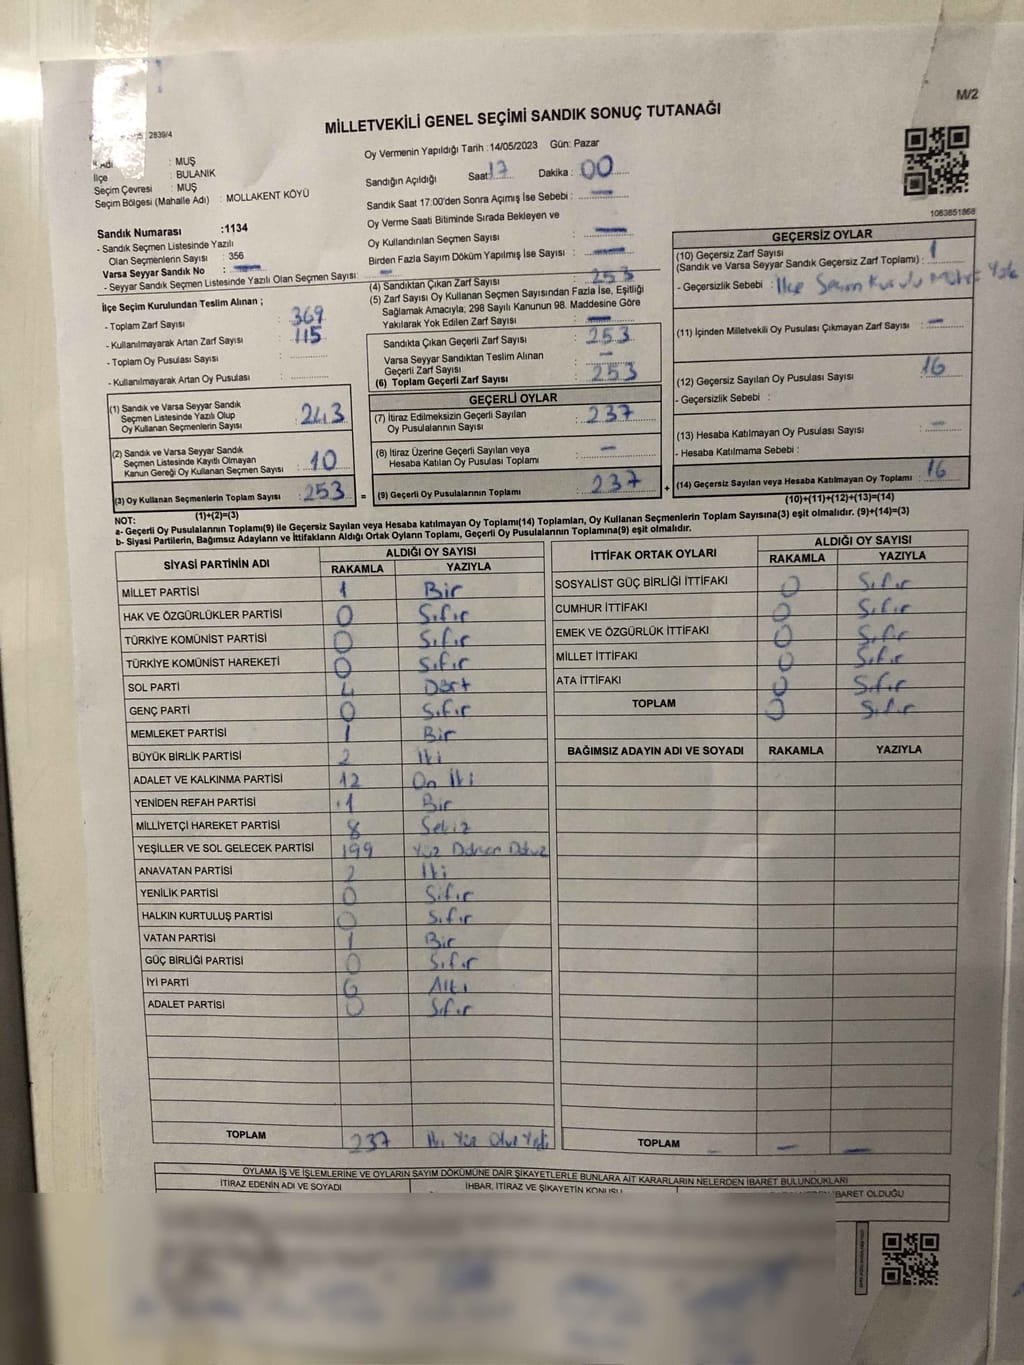 M/2
MİLLETVEKİLİ GENEL SEÇİMİ SANDIK SONUÇ TUTANAĞI
2839/4
: MUŞ
İlçe : BULANIK
Seçim Çevresi : MUŞ
Seçim Bölgesi (Mahalle Adı) : MOLLAKENT KÖYÜ
Oy Vermenin Yapıldığı Tarih : 14/05/2023 Gün: Pazar
Sandığın Açıldığı Saat: 17 Dakika : 00
Sandık Saat 17:00'den Sonra Açımış İse Sebebi : —
Oy Verme Saati Bitiminde Sırada Bekleyen ve
Oy Kullandırılan Seçmen Sayısı —
Birden Fazla Sayım Döküm Yapılmış İse Sayısı : —
1083851868
Sandık Numarası :1134
- Sandık Seçmen Listesinde Yazılı
Olan Seçmenlerin Sayısı : 356
Varsa Seyyar Sandık No : —
- Seyyar Sandık Seçmen Listesinde Yazılı Olan Seçmen Sayısı: —
İlçe Seçim Kurulundan Teslim Alınan ;
- Toplam Zarf Sayısı : 369
- Kullanılmayarak Artan Zarf Sayısı : 115
- Toplam Oy Pusulası Sayısı :
- Kullanılmayarak Artan Oy Pusulası :
(1) Sandık ve Varsa Seyyar Sandık
Seçmen Listesinde Yazılı Olup
Oy Kullanan Seçmenlerin Sayısı : 243
(2) Sandık ve Varsa Seyyar Sandık
Seçmen Listesinde Kayıtlı Olmayan
Kanun Gereği Oy Kullanan Seçmen Sayısı : 10
(3) Oy Kullanan Seçmenlerin Toplam Sayısı : 253
(1)+(2)=(3)
(4) Sandıktan Çıkan Zarf Sayısı : 253
(5) Zarf Sayısı Oy Kullanan Seçmen Sayısından Fazla İse, Eşitliği
Sağlamak Amacıyla; 298 Sayılı Kanunun 98. Maddesine Göre
Yakılarak Yok Edilen Zarf Sayısı : —
Sandıkta Çıkan Geçerli Zarf Sayısı : 253
Varsa Seyyar Sandıktan Teslim Alınan
Geçerli Zarf Sayısı : —
(6) Toplam Geçerli Zarf Sayısı : 253
GEÇERLİ OYLAR
(7) İtiraz Edilmeksizin Geçerli Sayılan
Oy Pusulalarının Sayısı : 237
(8) İtiraz Üzerine Geçerli Sayılan veya
Hesaba Katılan Oy Pusulası Toplamı : —
= (9) Geçerli Oy Pusulalarının Toplamı : 237
GEÇERSİZ OYLAR
(10) Geçersiz Zarf Sayısı
(Sandık ve Varsa Seyyar Sandık Geçersiz Zarf Toplamı) : 1
- Geçersizlik Sebebi : İlçe Seçim Kurulu Mührü Yok
(11) İçinden Milletvekili Oy Pusulası Çıkmayan Zarf Sayısı : —
(12) Geçersiz Sayılan Oy Pusulası Sayısı : 16
- Geçersizlik Sebebi :
(13) Hesaba Katılmayan Oy Pusulası Sayısı : —
- Hesaba Katılmama Sebebi :
+ (14) Geçersiz Sayılan veya Hesaba Katılmayan Oy Toplamı : 16
(10)+(11)+(12)+(13)=(14)
NOT:
a- Geçerli Oy Pusulalarının Toplamı(9) ile Geçersiz Sayılan veya Hesaba katılmayan Oy Toplamı(14) Toplamları, Oy Kullanan Seçmenlerin Toplam Sayısına(3) eşit olmalıdır. (9)+(14)=(3)
b- Siyasi Partilerin, Bağımsız Adayların ve İttifakların Aldığı Ortak Oyların Toplamı, Geçerli Oy Pusulalarının Toplamına(9) eşit olmalıdır.
SİYASİ PARTİNİN ADI ALDIĞI OY SAYISI
RAKAMLA YAZIYLA
MİLLET PARTİSİ 1 Bir
HAK VE ÖZGÜRLÜKLER PARTİSİ 0 Sıfır
TÜRKİYE KOMÜNİST PARTİSİ 0 Sıfır
TÜRKİYE KOMÜNİST HAREKETİ 0 Sıfır
SOL PARTİ 4 Dört
GENÇ PARTİ 0 Sıfır
MEMLEKET PARTİSİ 1 Bir
BÜYÜK BİRLİK PARTİSİ 2 İki
ADALET VE KALKINMA PARTİSİ 12 On İki
YENİDEN REFAH PARTİSİ 1 Bir
MİLLİYETÇİ HAREKET PARTİSİ 8 Sekiz
YEŞİLLER VE SOL GELECEK PARTİSİ 199 Yüz Doksan Dokuz
ANAVATAN PARTİSİ 2 İki
YENİLİK PARTİSİ 0 Sıfır
HALKIN KURTULUŞ PARTİSİ 0 Sıfır
VATAN PARTİSİ 1 Bir
GÜÇ BİRLİĞİ PARTİSİ 0 Sıfır
İYİ PARTİ 6 Altı
ADALET PARTİSİ 0 Sıfır
TOPLAM 237 İki Yüz Otuz Yedi
İTTİFAK ORTAK OYLARI ALDIĞI OY SAYISI
RAKAMLA YAZIYLA
SOSYALİST GÜÇ BİRLİĞİ İTTİFAKI 0 Sıfır
CUMHUR İTTİFAKI 0 Sıfır
EMEK VE ÖZGÜRLÜK İTTİFAKI 0 Sıfır
MİLLET İTTİFAKI 0 Sıfır
ATA İTTİFAKI 0 Sıfır
TOPLAM 0 Sıfır
BAĞIMSIZ ADAYIN ADI VE SOYADI RAKAMLA YAZIYLA
TOPLAM — —
OYLAMA İŞ VE İŞLEMLERİNE VE OYLARIN SAYIM DÖKÜMÜNE DAİR ŞİKAYETLERLE BUNLARA AİT KARARLARIN NELERDEN İBARET BULUNDUKLARI
İTİRAZ EDENİN ADI VE SOYADI İHBAR, İTİRAZ VE ŞİKAYETİN KONUSU İBARET OLDUĞU